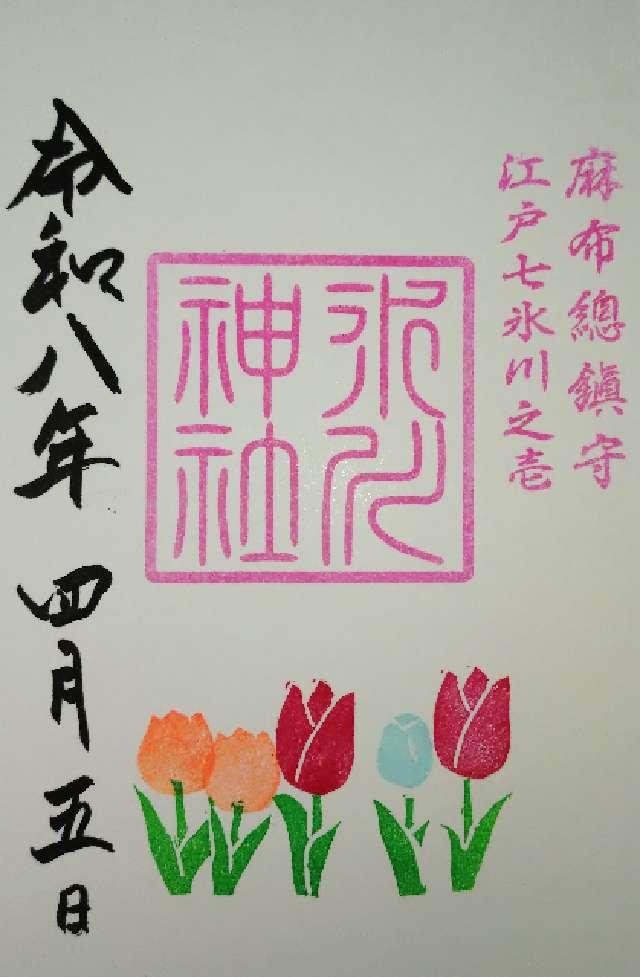 麻布總鎮守
江戸七氷川之壱
氷川
神社
令和八年 四月五日